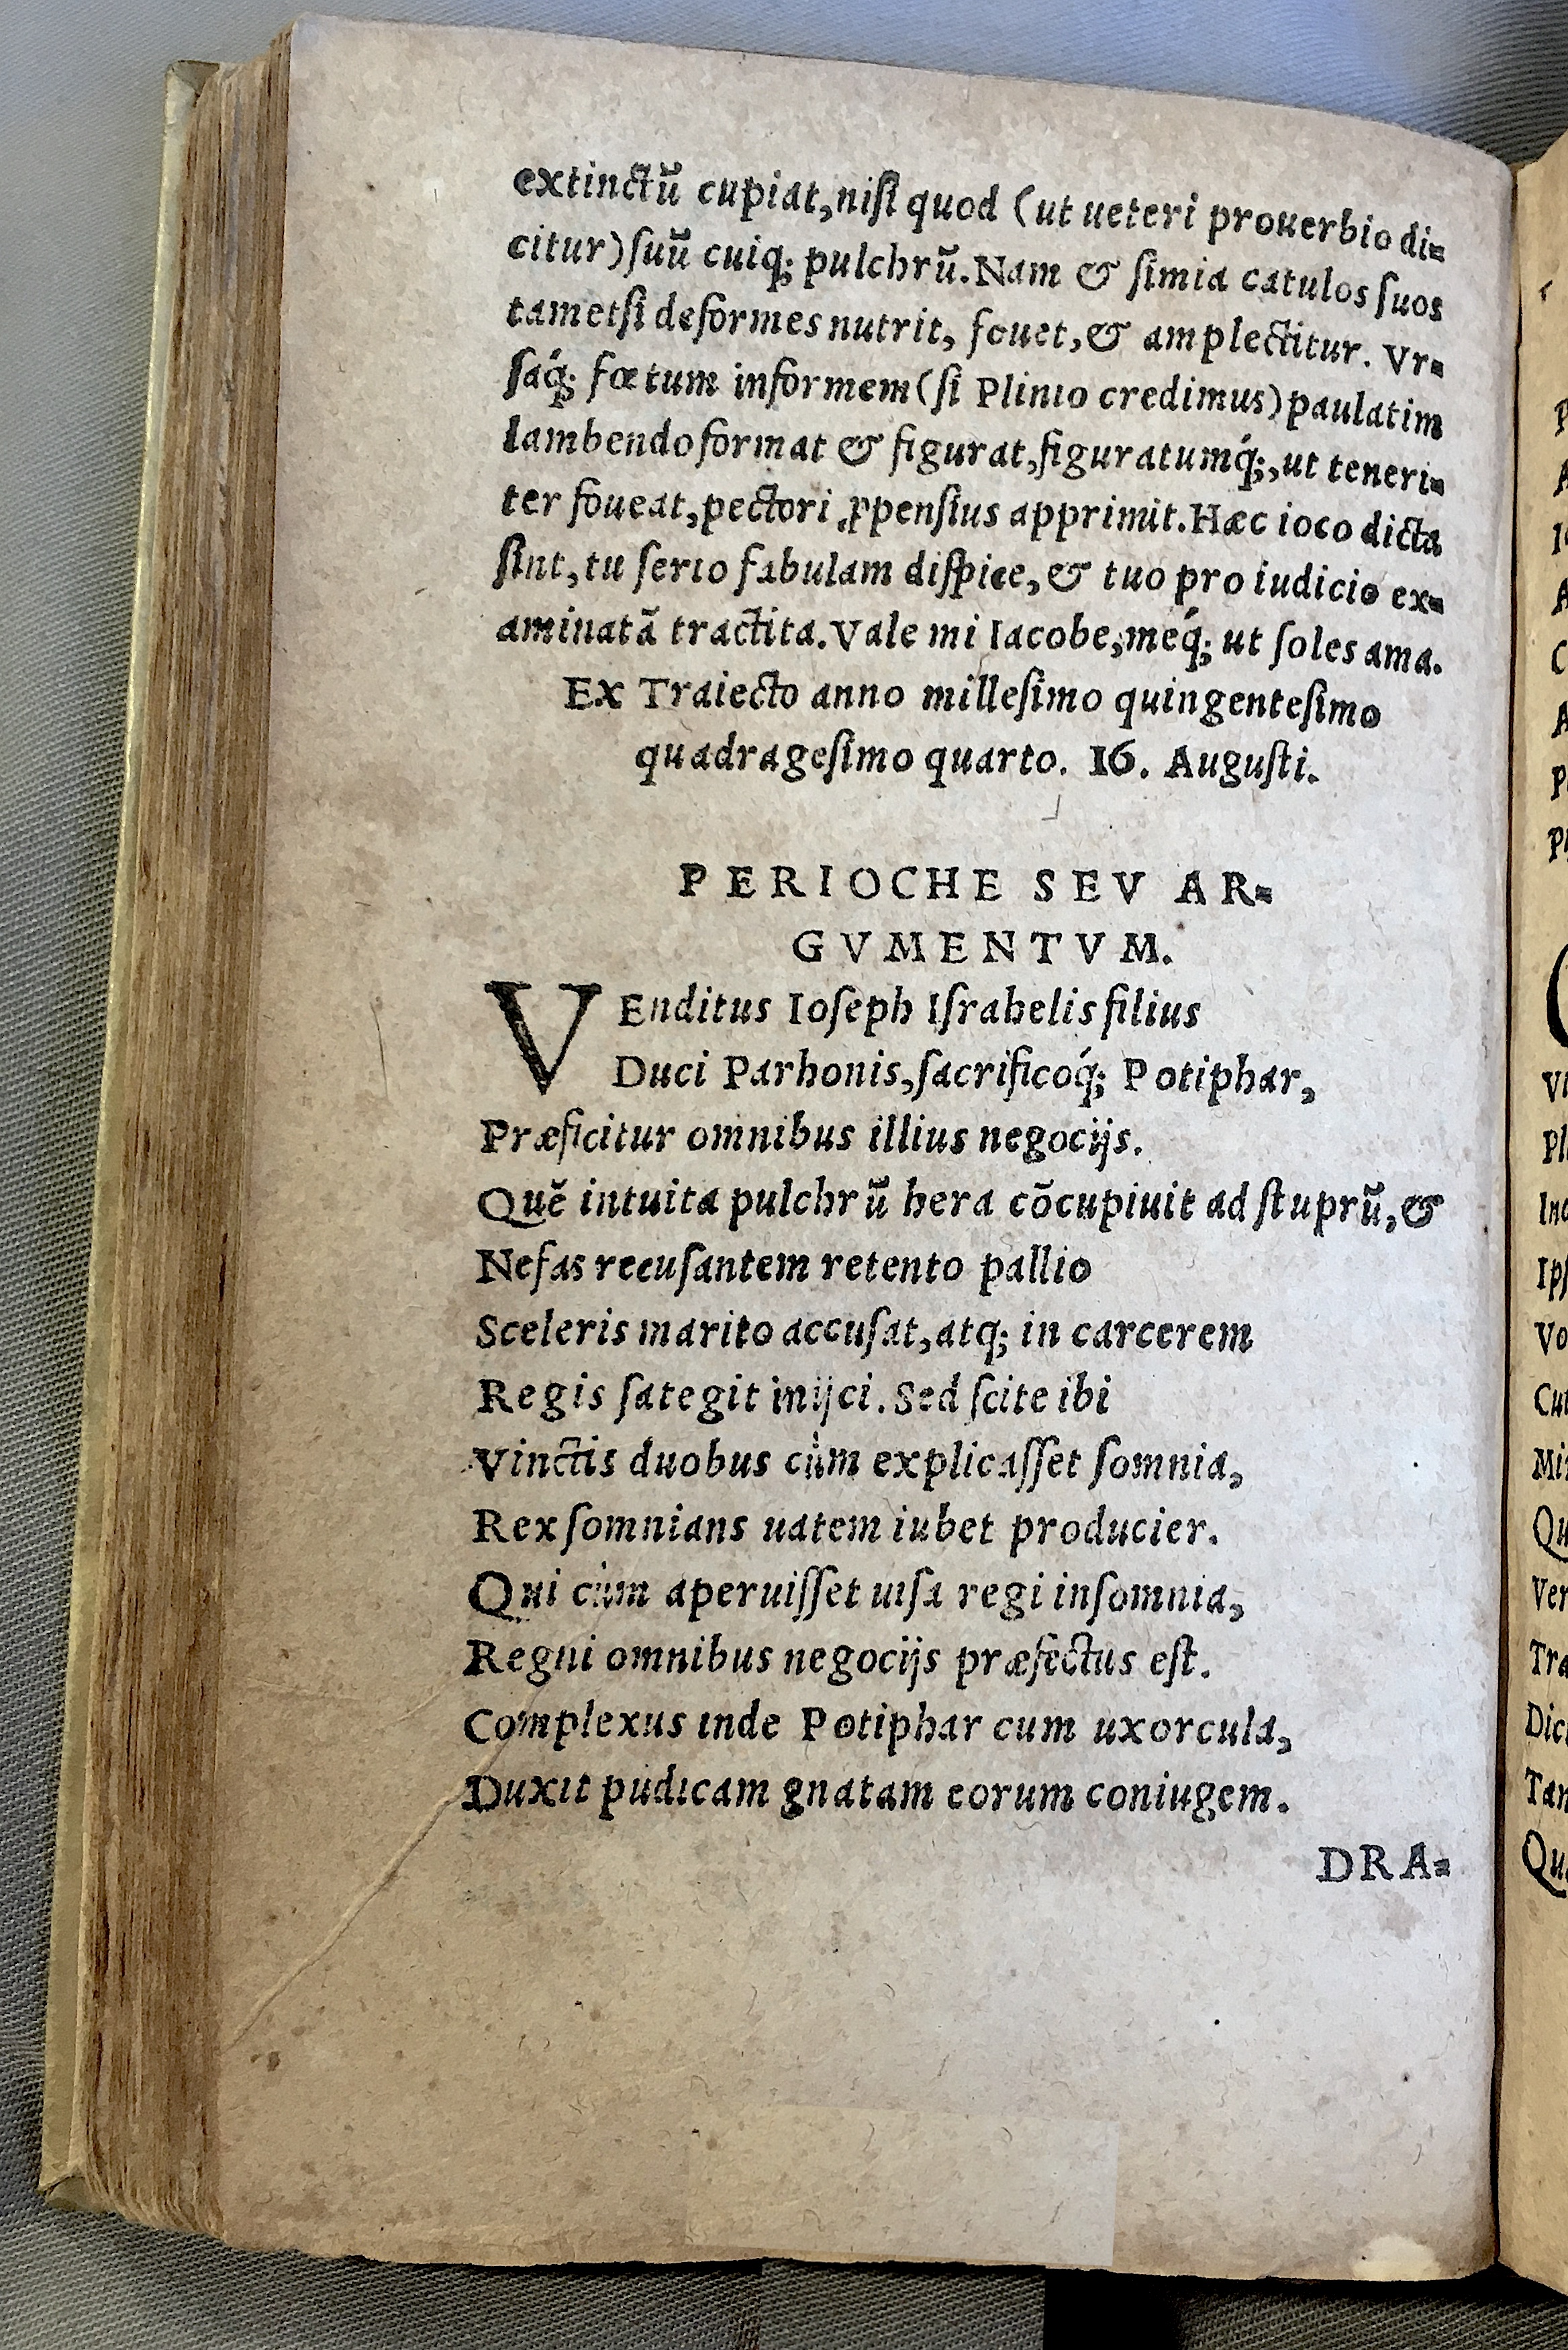 extinctũ cupiat, niſi quod (ut ueteri prouerbio di=
citur) ſuũ cuiq; pulchrũ. Nam & ſimia catulos ſuos
tametſi deformes nutrit, fouet, & amplectitur. Vr=
ſaq́; fœtum informem (ſi Plinio credimus) paulatim
lambendo format & figurat, figuratumq́;, ut teneri=
ter foueat, pectori ꝓpenſius apprimit. Hæc ioco dicta
ſint, tu ſerio fabulam diſpice, & tuo pro iudicio ex=
aminatã tractita. Vale mi Iacobe, meq́; ut ſoles ama.
Ex Traiecto anno milleſimo quingenteſimo
quadrageſimo quarto. 16. Auguſti.
PERIOCHE SEV AR=
GVMENTVM.
VEnditus Ioſeph Iſrahelis filius
Duci Parhonis, ſacrificoq́; Potiphar,
Præficitur omnibus illius negocijs.
Quẽ intuita pulchrũ hera cõcupiuit ad ſtuprũ, &
Nefas recuſantem retento pallio
Sceleris marito accuſat, atq; in carcerem
Regis ſategit inijci. Sed ſcite ibi
Vinctis duobus cùm explicaſſet ſomnia,
Rex ſomnians uatem iubet producier.
Qui cùm aperuiſſet uiſa regi inſomnia,
Regni omnibus negocijs præfectus eſt.
Complexus inde Potiphar cum uxorcula,
Duxit pudicam gnatam eorum coniugem.
DRA=